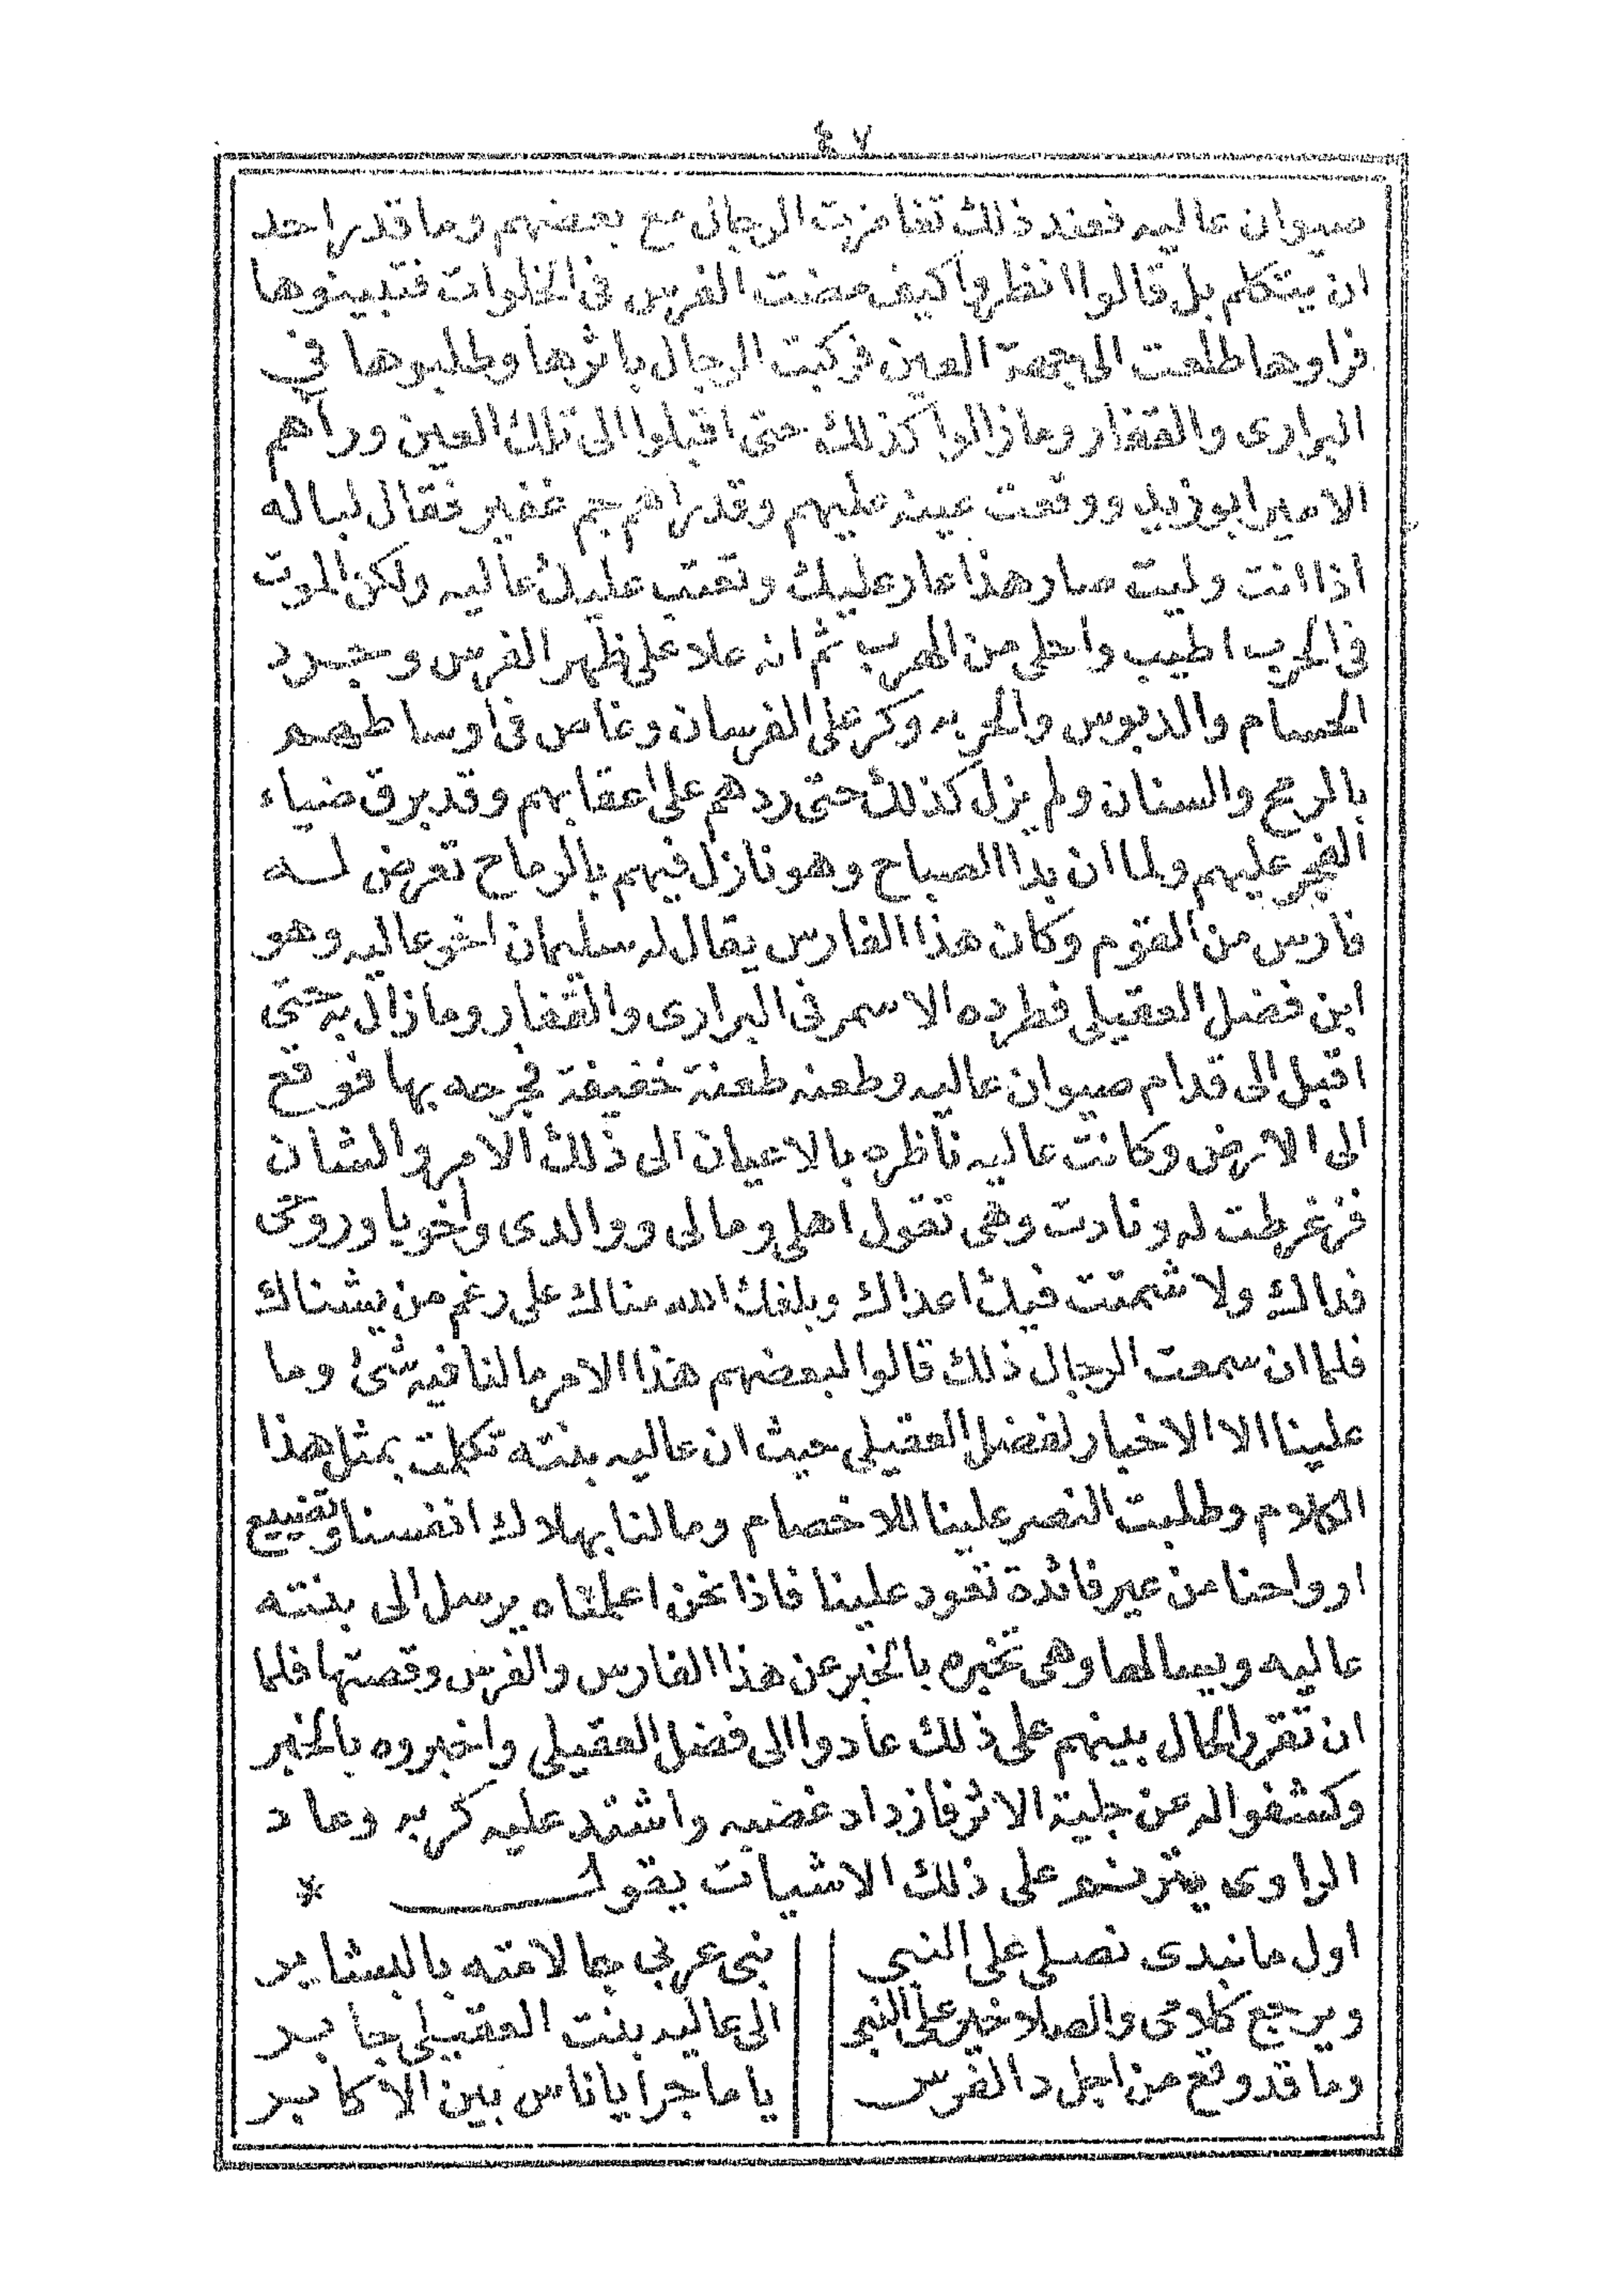 ٤٧
صيوان عاليه فعند ذلك تغامزت الرجال مع بعضهم وما قدر احد
ان يتكلم بل قالوا انظروا كيف مضت الفرس فى الخلوات فتبينوها
فراوها طلعت الى جهة العين فركبت الرجال باثرها وطلبوها في
البرارى والقفار وما زالوا كذلك حتى اقبلوا الى تلك العين ورآهم
الامير ابو زيد ووقعت عينه عليهم وقد راهم جم غفير فقال لباله
اذا انت وليت صار هذا عار عليك وتعتب عليك عاليه ولكن الموت
فى الحرب اطيب واحلى من الهرب ثم انه علا على ظهر الفرس وجرد
الحسام والدبوس والحربه وكر على الفرسان وغاص فى اوساطهم
بالرمح والسنان ولم يزل كذلك حتى ردهم على اعقابهم وقد برق ضياء
الفجر عليهم ولما ان بدا الصباح وهو نازل فيهم بالرماح تعرض له
فارس من القوم وكان هذا الفارس يقال له سليمان اخو عاليه وهو
ابن فضل العقيلى فطرده الاسمر فى البرارى والقفار وما زال به حتى
اقبل الى قدام صيوان عاليه وطعنه طعنة خفيفة فجرحه بها فوقع
الى الارض وكانت عاليه ناظره بالاعيان الى ذلك الامر والشان
فزغرطت له ونادت وهى تقول اهلى ومالى ووالدى واخويا وروحى
فداك ولا شمتت فيك اعداك وبلغك الله مناك على رغم من يشناك
فلما ان سمعت الرجال ذلك قالوا لبعضهم هذا الامر مالنا فيه شئ وما
علينا الا الاخبار لفضل العقيلى حيث ان عاليه بنته تكلمت بمثل هذا
الكلام وطلبت النصر علينا للاخصام ومالنا بهلاك انفسنا وتضييع
ارواحنا من غير فائدة تعود علينا فاذا نحن اعلمناه يرسل الى بنته
عاليه ويسالها وهى تخبره بالخبر عن هذا الفارس والفرس وقصتها فلما
ان تقرر الحال بينهم على ذلك عادوا الى فضل العقيلى واخبروه بالخبر
وكشفوا له عن جلية الاثر فازداد غضبه واشتد عليه كربه وعاد
الراوى يترنم على ذلك الاشيات يقول *
اول ما نبدى نصلى على النبى نبى عربى جا لامته بالبشاير
ويرجع كلامى والصلا خير على النبى الى عاليه بنت العقيلى جابر
وما قد وقع من اجل دا الفرس يا ما جرا يا ناس بين الاكابر